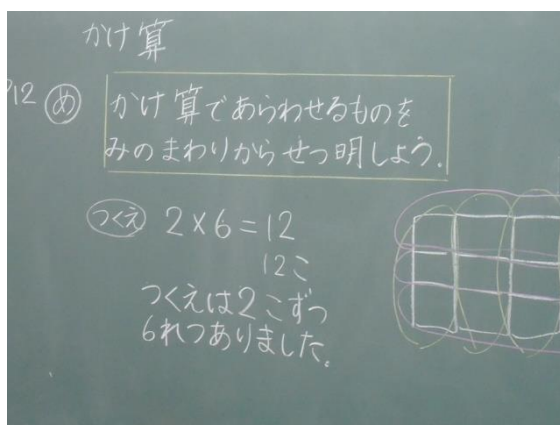 かけ算
P12 め かけ算であらわせるものを
みのまわりからせつ明しよう.
つくえ 2×6=12
12こ
つくえは2こずつ
6れつありました.